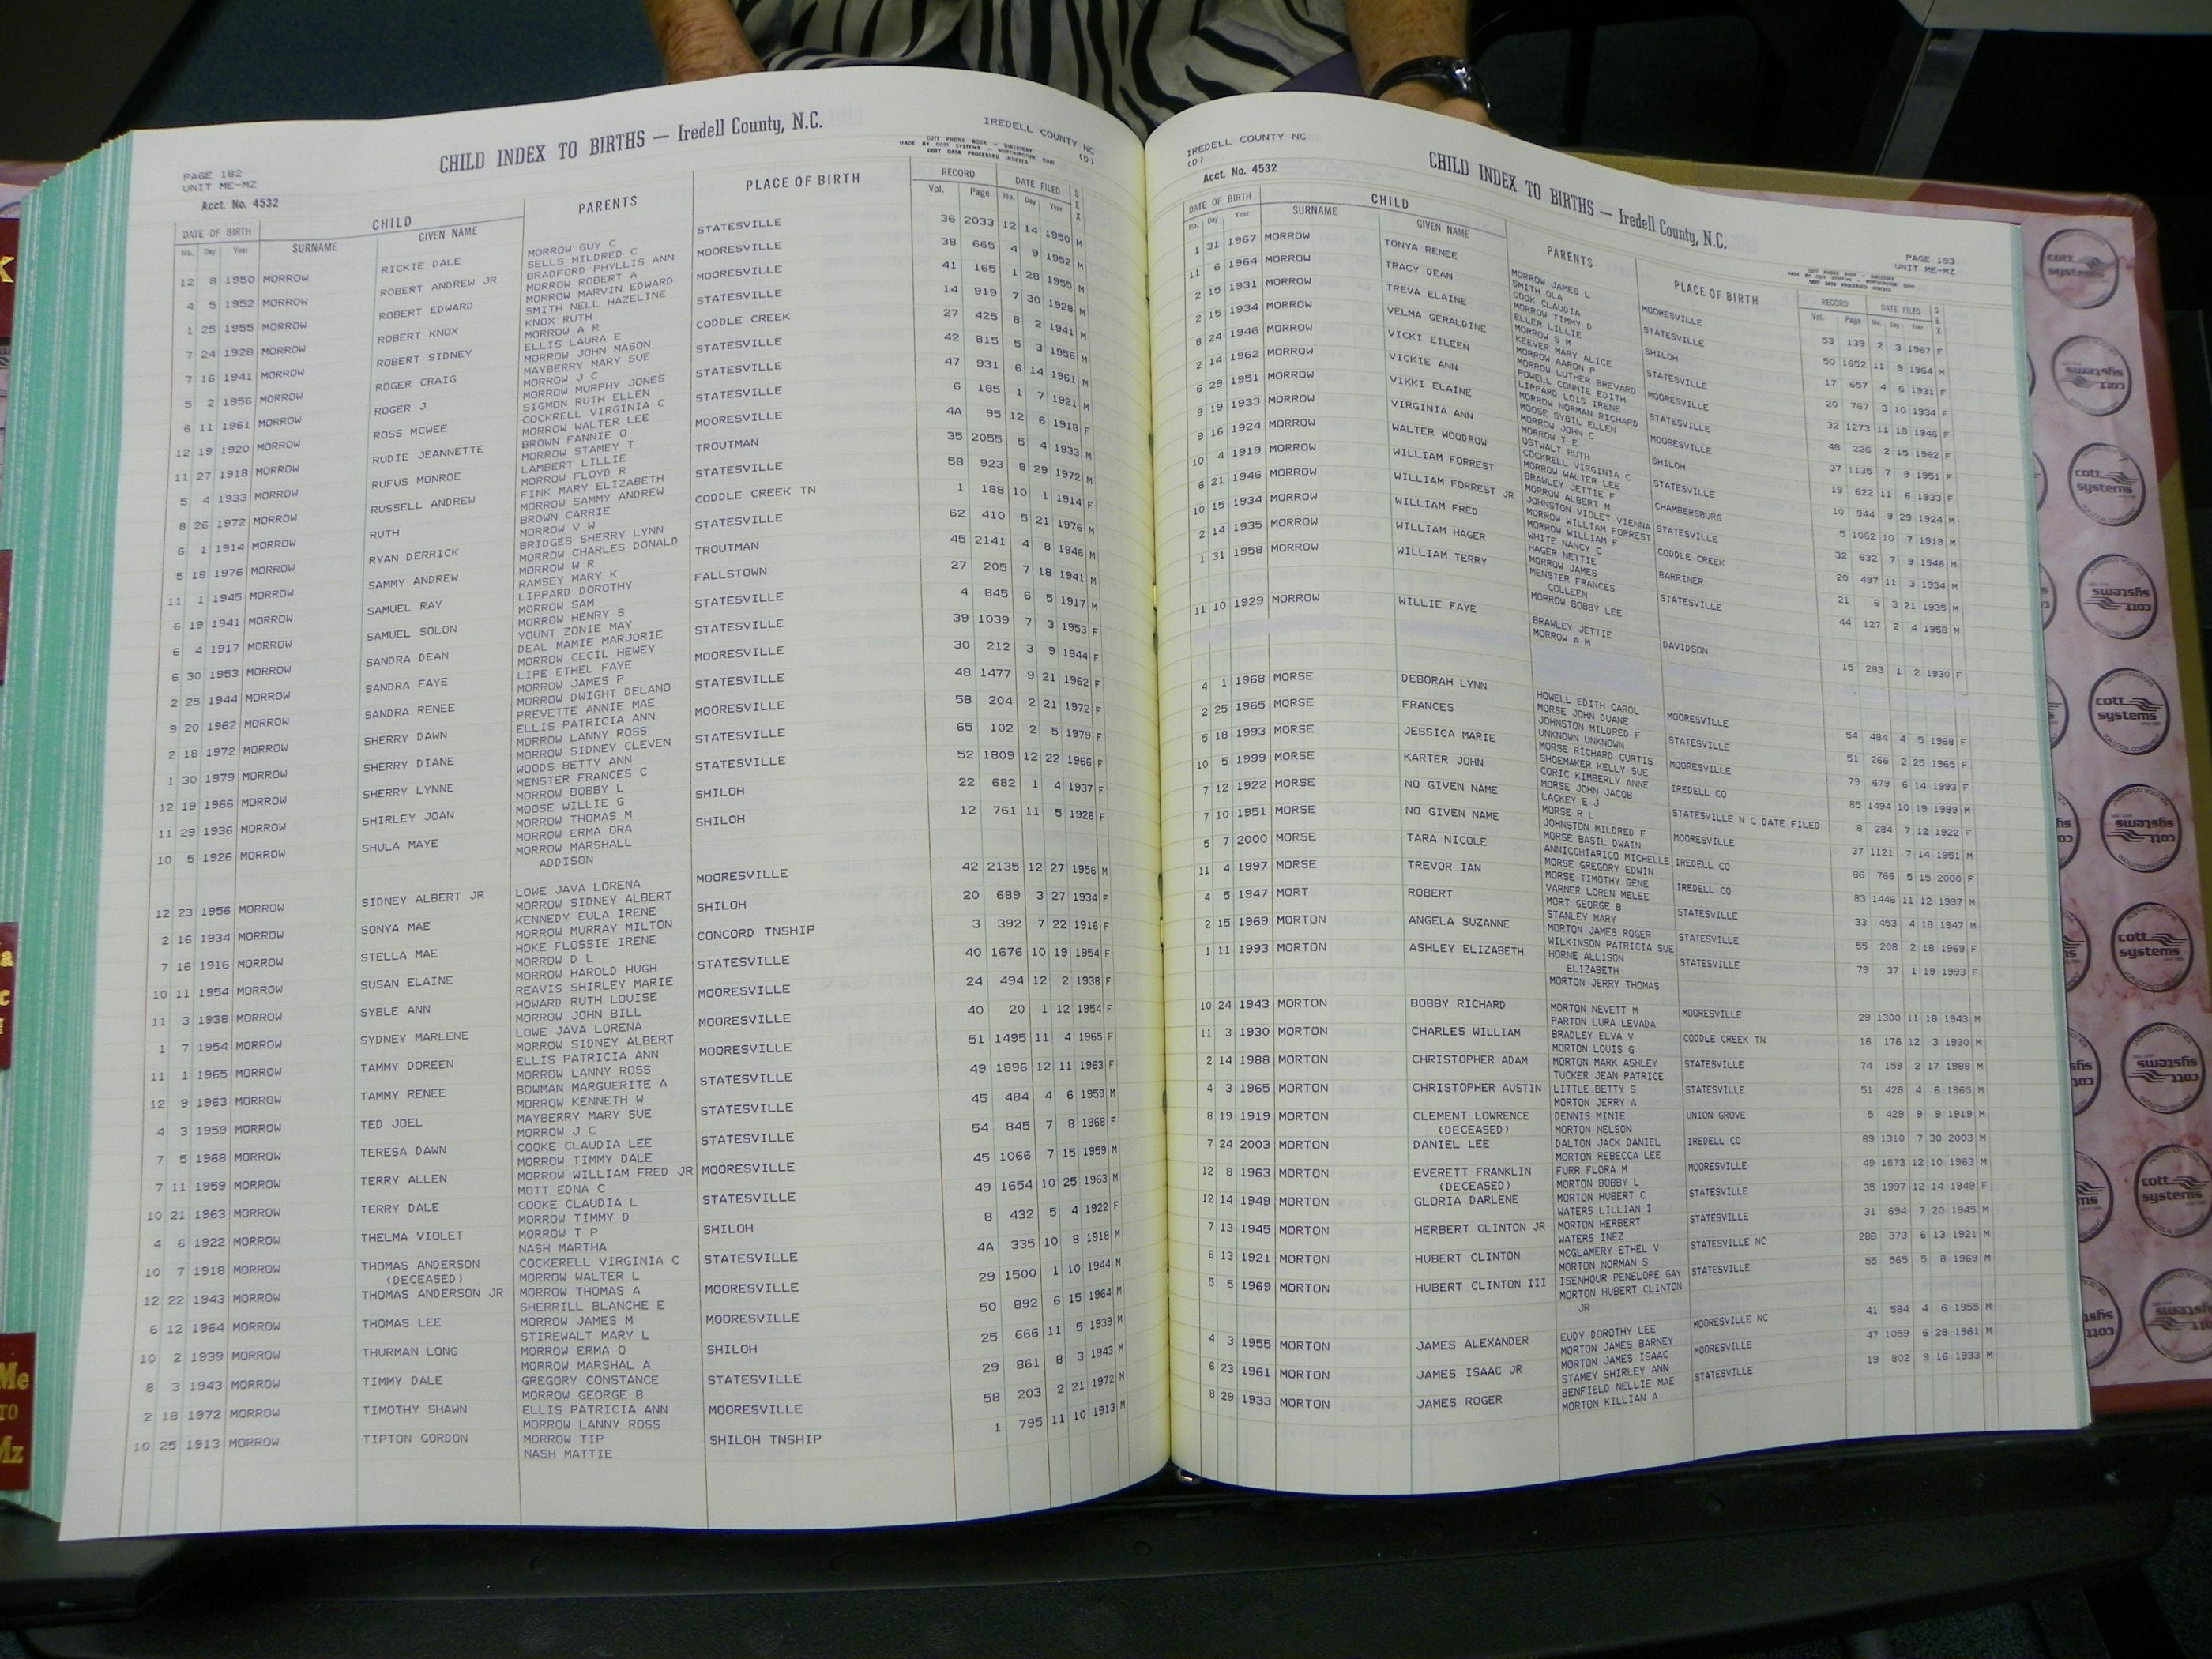 PAGE 182
UNIT ME-MZ
Acct. No. 4532
CHILD INDEX TO BIRTHS — Iredell County, N.C.
IREDELL COUNTY NC
(D)
COTT PHONE BOOK — DIRECTORY
MADE BY COTT SYSTEMS — WORTHINGTON, OHIO
COTT DATA PROCESSED INDEXES
DATE OF BIRTH CHILD PARENTS PLACE OF BIRTH RECORD DATE FILED SEX
Mo. Day Year SURNAME GIVEN NAME Vol. Page Mo. Day Year
12 8 1950 MORROW RICKIE DALE MORROW GUY C STATESVILLE 36 2033 12 14 1950 M
SELLS MILDRED C
4 5 1952 MORROW ROBERT ANDREW JR BRADFORD PHYLLIS ANN MOORESVILLE 38 665 4 9 1952 M
MORROW ROBERT A
1 25 1955 MORROW ROBERT EDWARD MORROW MARVIN EDWARD MOORESVILLE 41 165 1 28 1955 M
SMITH NELL HAZELINE
7 24 1928 MORROW ROBERT KNOX KNOX RUTH STATESVILLE 14 919 7 30 1928 M
MORROW A R
7 16 1941 MORROW ROBERT SIDNEY ELLIS LAURA E CODDLE CREEK 27 425 8 2 1941 M
MORROW JOHN MASON
5 2 1956 MORROW ROGER CRAIG MAYBERRY MARY SUE STATESVILLE 42 815 5 3 1956 M
MORROW J C
6 11 1961 MORROW ROGER J MORROW MURPHY JONES STATESVILLE 47 931 6 14 1961 M
SIGMON RUTH ELLEN
12 19 1920 MORROW ROSS MCWEE COCKRELL VIRGINIA C STATESVILLE 6 185 1 7 1921 M
MORROW WALTER LEE
11 27 1918 MORROW RUDIE JEANNETTE BROWN FANNIE O MOORESVILLE 4A 95 12 6 1918 F
MORROW STAMEY T
5 4 1933 MORROW RUFUS MONROE LAMBERT LILLIE TROUTMAN 35 2055 5 4 1933 M
MORROW FLOYD R
8 26 1972 MORROW RUSSELL ANDREW FINK MARY ELIZABETH STATESVILLE 58 923 8 29 1972 M
MORROW SAMMY ANDREW
6 1 1914 MORROW RUTH BROWN CARRIE CODDLE CREEK TN 1 188 10 1 1914 F
MORROW V W
5 18 1976 MORROW RYAN DERRICK BRIDGES SHERRY LYNN STATESVILLE 62 410 5 21 1976 M
MORROW CHARLES DONALD
11 1 1945 MORROW SAMMY ANDREW MORROW W R TROUTMAN 45 2141 4 8 1946 M
RAMSEY MARY K
6 19 1941 MORROW SAMUEL RAY LIPPARD DOROTHY FALLSTOWN 27 205 7 18 1941 M
MORROW SAM
6 4 1917 MORROW SAMUEL SOLON MORROW HENRY S STATESVILLE 4 845 6 5 1917 M
YOUNT ZONIE MAY
6 30 1953 MORROW SANDRA DEAN DEAL MAMIE MARJORIE STATESVILLE 39 1039 7 3 1953 F
MORROW CECIL HEWEY
2 25 1944 MORROW SANDRA FAYE LIPE ETHEL FAYE MOORESVILLE 30 212 3 9 1944 F
MORROW JAMES P
9 20 1962 MORROW SANDRA RENEE MORROW DWIGHT DELANO STATESVILLE 48 1477 9 21 1962 F
PREVETTE ANNIE MAE
2 18 1972 MORROW SHERRY DAWN ELLIS PATRICIA ANN MOORESVILLE 58 204 2 21 1972 F
MORROW LANNY ROSS
1 30 1979 MORROW SHERRY DIANE MORROW SIDNEY CLEVEN STATESVILLE 65 102 2 5 1979 F
WOODS BETTY ANN
12 19 1966 MORROW SHERRY LYNNE MENSTER FRANCES C STATESVILLE 52 1809 12 22 1966 F
MORROW BOBBY L
11 29 1936 MORROW SHIRLEY JOAN MOOSE WILLIE G SHILOH 22 682 1 4 1937 F
MORROW THOMAS M
10 5 1926 MORROW SHULA MAYE MORROW ERMA ORA SHILOH 12 761 11 5 1926 F
MORROW MARSHALL
ADDISON
12 23 1956 MORROW SIDNEY ALBERT JR LOWE JAVA LORENA MOORESVILLE 42 2135 12 27 1956 M
MORROW SIDNEY ALBERT
2 16 1934 MORROW SONYA MAE KENNEDY EULA IRENE SHILOH 20 689 3 27 1934 F
MORROW MURRAY MILTON
7 16 1916 MORROW STELLA MAE HOKE FLOSSIE IRENE CONCORD TNSHIP 3 392 7 22 1916 F
MORROW D L
10 11 1954 MORROW SUSAN ELAINE MORROW HAROLD HUGH STATESVILLE 40 1676 10 19 1954 F
REAVIS SHIRLEY MARIE
11 3 1938 MORROW SYBLE ANN HOWARD RUTH LOUISE MOORESVILLE 24 494 12 2 1938 F
MORROW JOHN BILL
1 7 1954 MORROW SYDNEY MARLENE LOWE JAVA LORENA MOORESVILLE 40 20 1 12 1954 F
MORROW SIDNEY ALBERT
11 1 1965 MORROW TAMMY DOREEN ELLIS PATRICIA ANN MOORESVILLE 51 1495 11 4 1965 F
MORROW LANNY ROSS
12 9 1963 MORROW TAMMY RENEE BOWMAN MARGUERITE A STATESVILLE 49 1896 12 11 1963 F
MORROW KENNETH W
4 3 1959 MORROW TED JOEL MAYBERRY MARY SUE STATESVILLE 45 484 4 6 1959 M
MORROW J C
7 5 1968 MORROW TERESA DAWN COOKE CLAUDIA LEE STATESVILLE 54 845 7 8 1968 F
MORROW TIMMY DALE
7 11 1959 MORROW TERRY ALLEN MORROW WILLIAM FRED JR MOORESVILLE 45 1066 7 15 1959 M
MOTT EDNA C
10 21 1963 MORROW TERRY DALE COOKE CLAUDIA L STATESVILLE 49 1654 10 25 1963 M
MORROW TIMMY D
4 6 1922 MORROW THELMA VIOLET MORROW T P SHILOH 8 432 5 4 1922 F
NASH MARTHA
10 7 1918 MORROW THOMAS ANDERSON COCKERELL VIRGINIA C STATESVILLE 4A 335 10 8 1918 M
(DECEASED) MORROW WALTER L
12 22 1943 MORROW THOMAS ANDERSON JR MORROW THOMAS A MOORESVILLE 29 1500 1 10 1944 M
SHERRILL BLANCHE E
6 12 1964 MORROW THOMAS LEE MORROW JAMES M MOORESVILLE 50 892 6 15 1964 M
STIREWALT MARY L
10 2 1939 MORROW THURMAN LONG MORROW ERMA O SHILOH 25 666 11 5 1939 M
MORROW MARSHAL A
8 3 1943 MORROW TIMMY DALE GREGORY CONSTANCE STATESVILLE 29 861 8 3 1943 M
MORROW GEORGE B
2 18 1972 MORROW TIMOTHY SHAWN ELLIS PATRICIA ANN MOORESVILLE 58 203 2 21 1972 M
MORROW LANNY ROSS
10 25 1913 MORROW TIPTON GORDON MORROW TIP SHILOH TNSHIP 1 795 11 10 1913 M
NASH MATTIE
IREDELL COUNTY NC
(D)
Acct. No. 4532
CHILD INDEX TO BIRTHS — Iredell County, N.C.
PAGE 183
UNIT ME-MZ
DATE OF BIRTH CHILD PARENTS PLACE OF BIRTH RECORD DATE FILED SEX
Mo. Day Year SURNAME GIVEN NAME Vol. Page Mo. Day Year
1 31 1967 MORROW TONYA RENEE MORROW JAMES L MOORESVILLE 53 139 2 3 1967 F
SMITH OLA
11 6 1964 MORROW TRACY DEAN COOK CLAUDIA STATESVILLE 50 1652 11 9 1964 M
MORROW TIMMY D
2 15 1931 MORROW TREVA ELAINE ELLER LILLIE SHILOH 17 657 4 6 1931 F
MORROW S M
2 15 1934 MORROW VELMA GERALDINE KEEVER MARY ALICE STATESVILLE 20 767 3 10 1934 F
MORROW AARON P
8 24 1946 MORROW VICKI EILEEN MORROW LUTHER BREVARD MOORESVILLE 32 1273 11 18 1946 F
POWELL CONNIE EDITH
2 14 1962 MORROW VICKIE ANN LIPPARD LOIS IRENE STATESVILLE 48 226 2 15 1962 F
MORROW NORMAN RICHARD
6 29 1951 MORROW VIKKI ELAINE MOOSE SYBIL ELLEN MOORESVILLE 37 1135 7 9 1951 F
MORROW JOHN C
9 19 1933 MORROW VIRGINIA ANN MORROW T E SHILOH 19 622 11 6 1933 F
OSTWALT RUTH
9 16 1924 MORROW WALTER WOODROW COCKRELL VIRGINIA C STATESVILLE 10 944 9 29 1924 M
MORROW WALTER LEE
10 4 1919 MORROW WILLIAM FORREST BRAWLEY JETTIE F CHAMBERSBURG 5 1062 10 7 1919 M
MORROW ALBERT M
6 21 1946 MORROW WILLIAM FORREST JR JOHNSTON VIOLET VIENNA STATESVILLE 32 632 7 9 1946 M
MORROW WILLIAM FORREST
10 15 1934 MORROW WILLIAM FRED MORROW WILLIAM F CODDLE CREEK 20 497 11 3 1934 M
WHITE NANCY C
2 14 1935 MORROW WILLIAM HAGER HAGER NETTIE BARRINER 21 6 3 21 1935 M
MORROW JAMES
1 31 1958 MORROW WILLIAM TERRY MENSTER FRANCES STATESVILLE 44 127 2 4 1958 M
COLLEEN
MORROW BOBBY LEE
11 10 1929 MORROW WILLIE FAYE BRAWLEY JETTIE DAVIDSON 15 283 1 2 1930 F
MORROW A M
4 1 1968 MORSE DEBORAH LYNN HOWELL EDITH CAROL MOORESVILLE 54 484 4 5 1968 F
MORSE JOHN DUANE
2 25 1965 MORSE FRANCES JOHNSTON MILDRED F STATESVILLE 51 266 2 25 1965 F
UNKNOWN UNKNOWN
5 18 1993 MORSE JESSICA MARIE MORSE RICHARD CURTIS MOORESVILLE 79 679 6 14 1993 F
SHOEMAKER KELLY SUE
10 5 1999 MORSE KARTER JOHN CORIC KIMBERLY ANNE IREDELL CO 85 1494 10 19 1999 M
MORSE JOHN JACOB
7 12 1922 MORSE NO GIVEN NAME LACKEY E J STATESVILLE N C DATE FILED 8 284 7 12 1922 F
MORSE R L
7 10 1951 MORSE NO GIVEN NAME JOHNSTON MILDRED F MOORESVILLE 37 1121 7 14 1951 M
MORSE BASIL DWAIN
5 7 2000 MORSE TARA NICOLE ANNICCHIARICO MICHELLE IREDELL CO 86 766 5 15 2000 F
MORSE GREGORY EDWIN
11 4 1997 MORSE TREVOR IAN MORSE TIMOTHY GENE IREDELL CO 83 1446 11 12 1997 M
VARNER LOREN MELEE
4 5 1947 MORT ROBERT MORT GEORGE B STATESVILLE 33 453 4 18 1947 M
STANLEY MARY
2 15 1969 MORTON ANGELA SUZANNE MORTON JAMES ROGER STATESVILLE 55 208 2 18 1969 F
WILKINSON PATRICIA SUE
1 11 1993 MORTON ASHLEY ELIZABETH HORNE ALLISON STATESVILLE 79 37 1 19 1993 F
ELIZABETH
MORTON JERRY THOMAS
10 24 1943 MORTON BOBBY RICHARD MORTON NEVETT M MOORESVILLE 29 1300 11 18 1943 M
PARTON LURA LEVADA
11 3 1930 MORTON CHARLES WILLIAM BRADLEY ELVA V CODDLE CREEK TN 16 176 12 3 1930 M
MORTON LOUIS G
2 14 1988 MORTON CHRISTOPHER ADAM MORTON MARK ASHLEY STATESVILLE 74 159 2 17 1988 M
TUCKER JEAN PATRICE
4 3 1965 MORTON CHRISTOPHER AUSTIN LITTLE BETTY S STATESVILLE 51 428 4 6 1965 M
MORTON JERRY A
8 19 1919 MORTON CLEMENT LOWRENCE DENNIS MINIE UNION GROVE 5 429 9 9 1919 M
(DECEASED) MORTON NELSON
7 24 2003 MORTON DANIEL LEE DALTON JACK DANIEL IREDELL CO 89 1310 7 30 2003 M
MORTON REBECCA LEE
12 8 1963 MORTON EVERETT FRANKLIN FURR FLORA M MOORESVILLE 49 1873 12 10 1963 M
(DECEASED) MORTON BOBBY L
12 14 1949 MORTON GLORIA DARLENE MORTON HUBERT C STATESVILLE 35 1997 12 14 1949 F
WATERS LILLIAN I
7 13 1945 MORTON HERBERT CLINTON JR MORTON HERBERT STATESVILLE 31 694 7 20 1945 M
WATERS INEZ
6 13 1921 MORTON HUBERT CLINTON MCGLAMERY ETHEL V STATESVILLE NC 288 373 6 13 1921 M
MORTON NORMAN S
5 5 1969 MORTON HUBERT CLINTON III ISENHOUR PENELOPE GAY STATESVILLE 55 565 5 8 1969 M
MORTON HUBERT CLINTON
JR
4 3 1955 MORTON JAMES ALEXANDER EUDY DOROTHY LEE MOORESVILLE NC 41 584 4 6 1955 M
MORTON JAMES BARNEY
6 23 1961 MORTON JAMES ISAAC JR MORTON JAMES ISAAC MOORESVILLE 47 1059 6 28 1961 M
STAMEY SHIRLEY ANN
8 29 1933 MORTON JAMES ROGER BENFIELD NELLIE MAE STATESVILLE 19 802 9 16 1933 M
MORTON KILLIAN A
cott systems
Me
TO
Mz